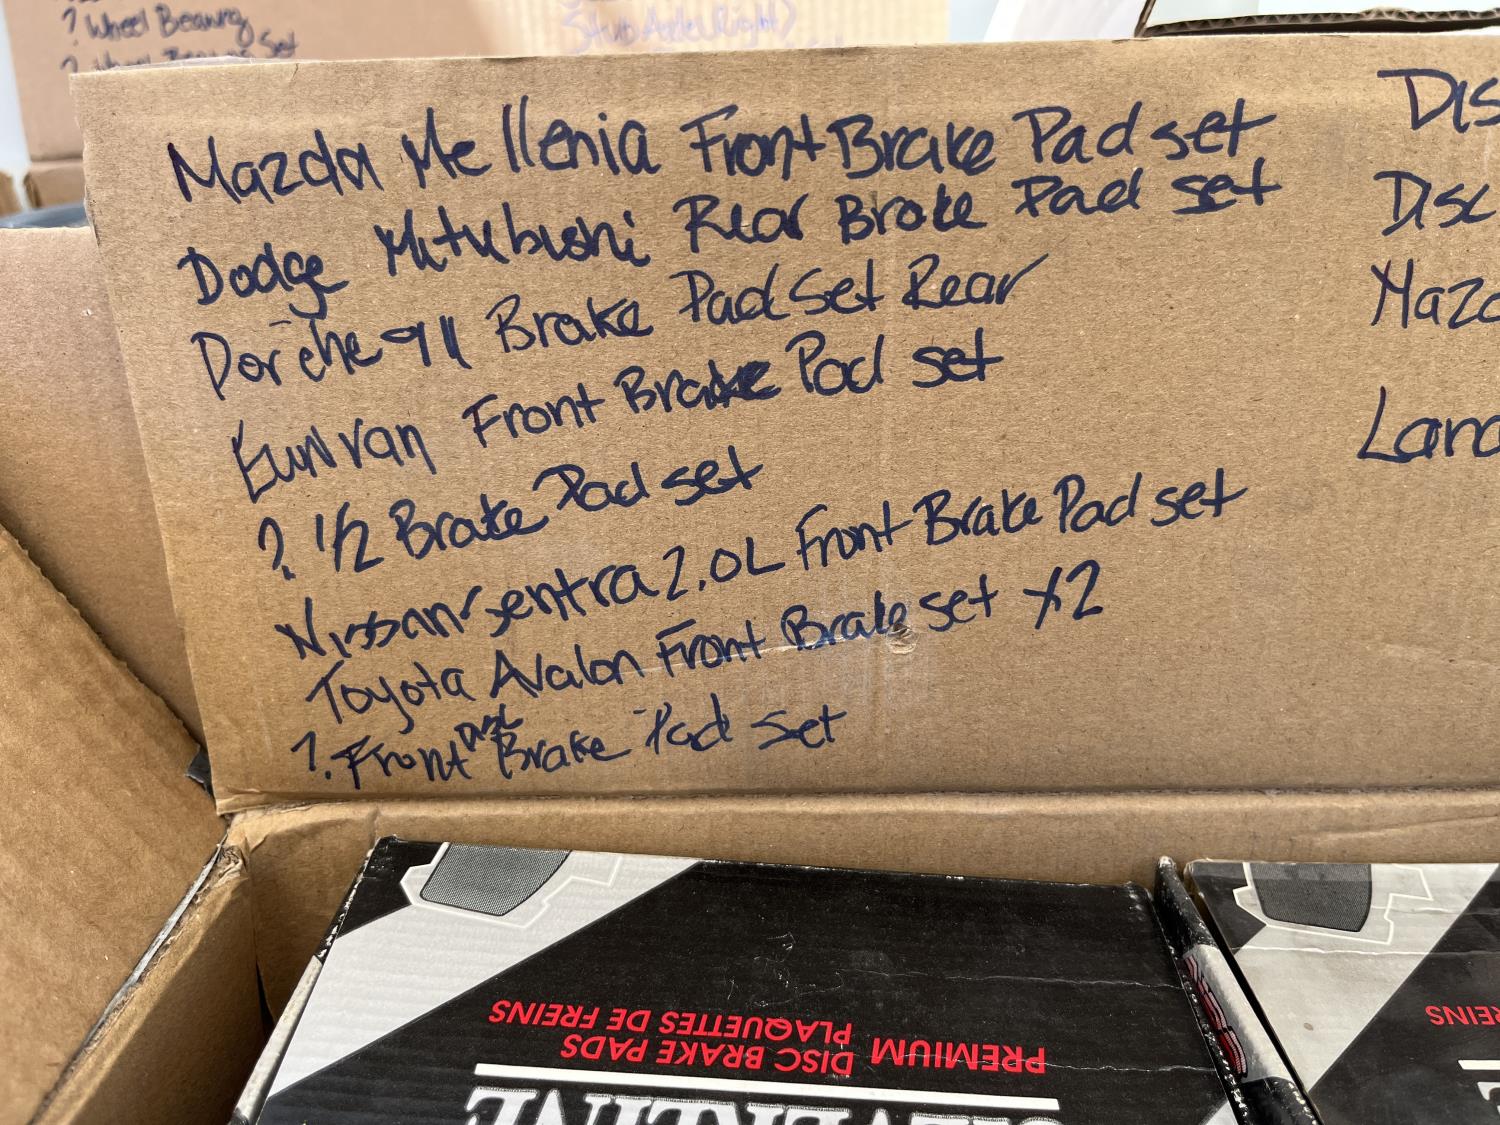 ? Wheel Bearing
Mazda Mellenia Front Brake Pad set
Dodge Mitubushi Rear Brake Pad set
Porche 911 Brake Pad Set Rear
Eurvan Front Brake Pad set
? 1/2 Brake Pad set
Nissan sentra 2.0L Front Brake Pad set
Toyota Avalon Front Brake set x2
?. Front Disc Brake Pad Set
Dis
Disc
Mazd
Land
PREMIUM
DISC BRAKE PADS
PLAQUETTES DE FREINS
REINS